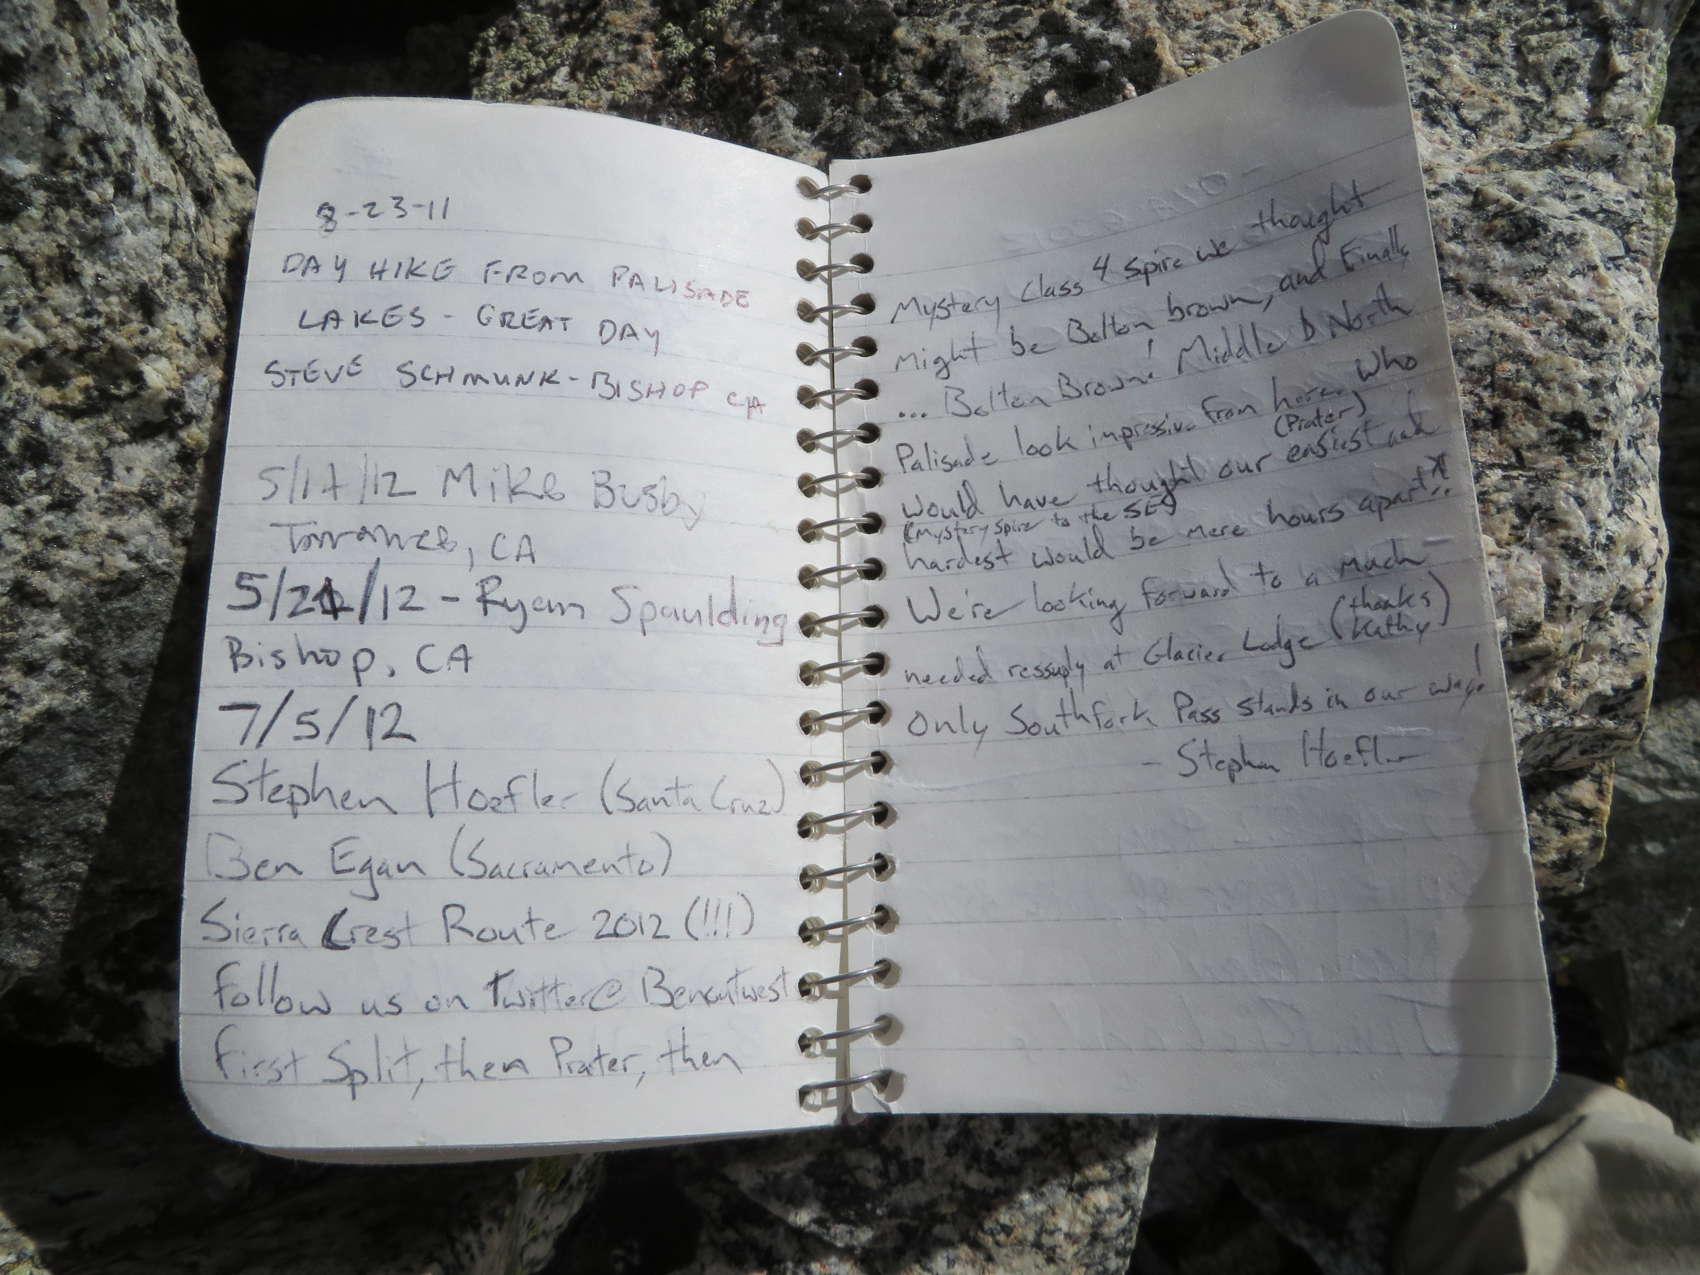 8-23-11
DAY HIKE FROM PALISADE
LAKES - GREAT DAY
STEVE SCHMUNK - BISHOP CA
5/17/12 Mike Busby
Torrance, CA
5/21/12 - Ryan Spaulding
Bishop, CA
7/5/12
Stephen Hoefler (Santa Cruz)
Ben Egan (Sacramento)
Sierra Crest Route 2012 (!!!)
Follow us on Twitter @ Benoutwest
First Split, then Prater, then
Mystery Class 4 spire we thought
might be Bolton brown, and Finally
... Bolton Brown! Middle & North
Palisade look impressive from here. Who
(Prater)
would have thought our easiest and
(mystery spire to the SE)
hardest would be mere hours apart?!
We're looking forward to a much
needed ressuply at Glacier Lodge (thanks Kathy)
only Southfork Pass stands in our way!
- Stephen Hoefler